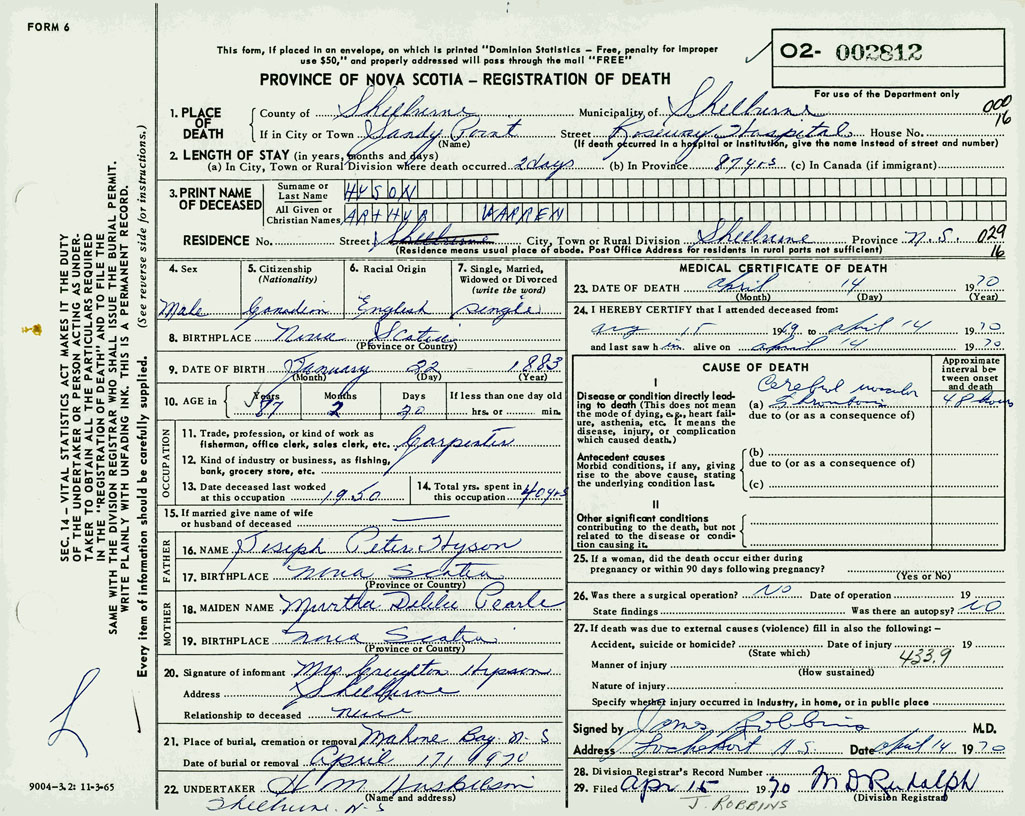 FORM 6
This form, if placed in an envelope, on which is printed "Dominion Statistics – Free, penalty for improper
use $50," and properly addressed will pass through the mail "FREE"
O2- 002812
For use of the Department only
PROVINCE OF NOVA SCOTIA – REGISTRATION OF DEATH
000
16
1. PLACE OF DEATH { County of Shelburne Municipality of Shelburne
If in City or Town Sandy Point Street Roseway Hospital House No.
(Name) (If death occurred in a hospital or institution, give the name instead of street and number)
2. LENGTH OF STAY (in years, months and days)
(a) In City, Town or Rural Division where death occurred 2 days (b) In Province 87 yrs (c) In Canada (if immigrant)
3. PRINT NAME OF DECEASED { Surname or Last Name HYSON
All Given or Christian Names ARTHUR WARREN
RESIDENCE No. Street Shelburne City, Town or Rural Division Shelburne Province N.S. 029
(Residence means usual place of abode. Post Office Address for residents in rural parts not sufficient) 16
4. Sex Male
5. Citizenship (Nationality) Canadian
6. Racial Origin English
7. Single, Married, Widowed or Divorced (write the word) Single
8. BIRTHPLACE Nova Scotia
(Province or Country)
9. DATE OF BIRTH January 22 1883
(Month) (Day) (Year)
10. AGE in Years 87 Months 2 Days 20 If less than one day old hrs. or min.
OCCUPATION
11. Trade, profession, or kind of work as
fisherman, office clerk, sales clerk, etc. Carpenter
12. Kind of industry or business, as fishing,
bank, grocery store, etc.
13. Date deceased last worked
at this occupation 1950
14. Total yrs. spent in
this occupation 40 yrs
15. If married give name of wife
or husband of deceased —
FATHER
16. NAME Joseph Peter Hyson
17. BIRTHPLACE Nova Scotia
(Province or Country)
MOTHER
18. MAIDEN NAME Pearle
19. BIRTHPLACE Nova Scotia
(Province or Country)
20. Signature of informant Mrs Creighton Hyson
Address Shelburne
Relationship to deceased niece
21. Place of burial, cremation or removal Mahone Bay N-S
Date of burial or removal April 17, 1970
22. UNDERTAKER H M Huskilson
(Name and address)
Shelburne N-S
MEDICAL CERTIFICATE OF DEATH
23. DATE OF DEATH April 14 1970
(Month) (Day) (Year)
24. I HEREBY CERTIFY that I attended deceased from:
15 1969 to April 14 1970
and last saw h im alive on April 14 1970
CAUSE OF DEATH
Approximate interval between onset and death
I
Disease or condition directly leading
to death (This does not mean
the mode of dying, e.g., heart failure,
asthenia, etc. It means the
disease, injury, or complication
which caused death.)
(a) Cerebral vascular
Thrombosis 48 hours
due to (or as a consequence of)
Antecedent causes
Morbid conditions, if any, giving
rise to the above cause, stating
the underlying condition last.
(b)
due to (or as a consequence of)
(c)
II
Other significant conditions
contributing to the death, but not
related to the disease or condition
causing it.
25. If a woman, did the death occur either during
pregnancy or within 90 days following pregnancy?
(Yes or No)
26. Was there a surgical operation? NO Date of operation 19
State findings Was there an autopsy? NO
27. If death was due to external causes (violence) fill in also the following: –
Accident, suicide or homicide? Date of injury 19
(State which) 433.9
Manner of injury
(How sustained)
Nature of injury
Specify whether injury occurred in Industry, in home, or in public place
Signed by Robbins M.D.
Address Lockeport N.S. Date April 14 1970
28. Division Registrar's Record Number
29. Filed Apr 15 1970 M D Rudolph
J. ROBBINS (Division Registrar)
SEC. 14 – VITAL STATISTICS ACT MAKES IT THE DUTY
OF THE UNDERTAKER OR PERSON ACTING AS UNDERTAKER
TO OBTAIN ALL THE PARTICULARS REQUIRED
IN THE "REGISTRATION OF DEATH" AND TO FILE THE
SAME WITH THE DIVISION REGISTRAR WHO SHALL ISSUE THE BURIAL PERMIT.
WRITE PLAINLY WITH UNFADING INK. THIS IS A PERMANENT RECORD.
Every item of information should be carefully supplied. (See reverse side for instructions.)
9004-3.2: 11-3-65